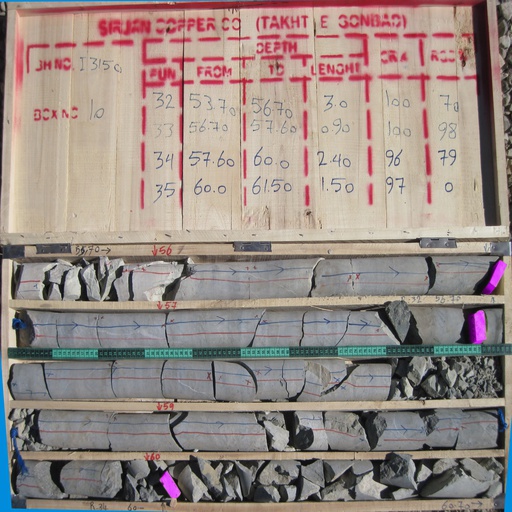 SIRJAN COPPER CO (TAKHT E GONBAD)
DEPTH
BH NO.
RUN FROM TO LENGHT CR% RQD
BOX NO 10
32 53.70 56.70 3.0 100 70
33 56.70 57.60 0.90 100 98
34 57.60 60.0 2.40 96 79
35 60.0 61.50 1.50 97 0
↓56
↓57
↓59
↓60